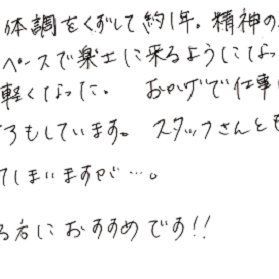 体調をくずして約1年。精神の
ペースで楽士に来るようになっ
軽くなった。 おかげで仕事
ろもしています。スタッフさんとも
てしまいますが…。
る者におすすめです!!